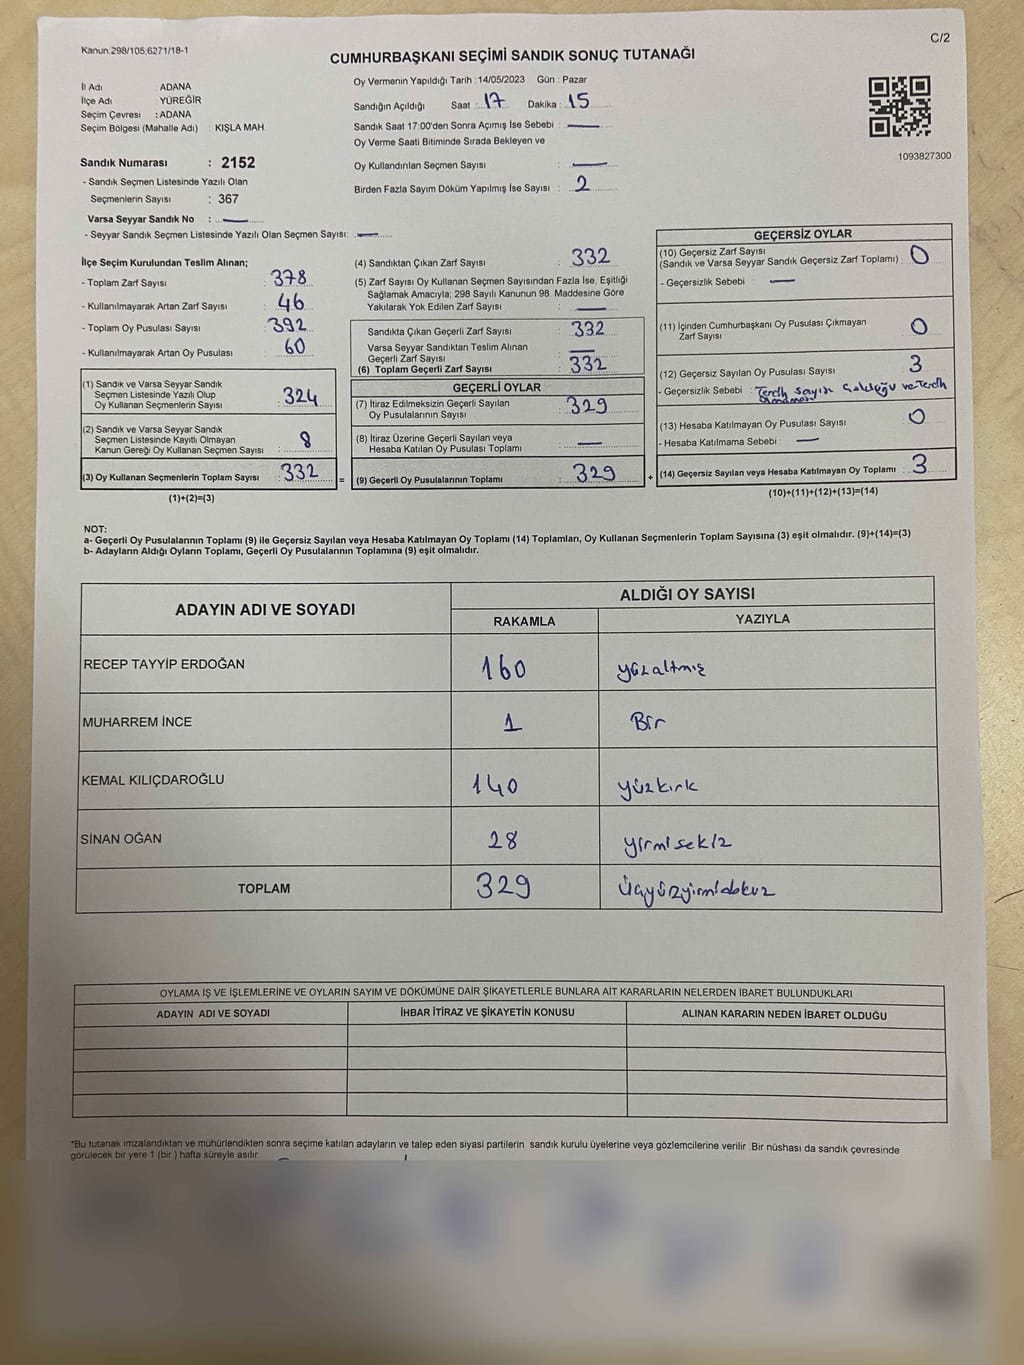 Kanun.298/105,6271/18-1
C/2
CUMHURBAŞKANI SEÇİMİ SANDIK SONUÇ TUTANAĞI
İl Adı ADANA
İlçe Adı : YÜREĞİR
Seçim Çevresi : ADANA
Seçim Bölgesi (Mahalle Adı) : KIŞLA MAH
Sandık Numarası : 2152
- Sandık Seçmen Listesinde Yazılı Olan
Seçmenlerin Sayısı : 367
Varsa Seyyar Sandık No :
- Seyyar Sandık Seçmen Listesinde Yazılı Olan Seçmen Sayısı:
Oy Vermenin Yapıldığı Tarih : 14/05/2023 Gün : Pazar
Sandığın Açıldığı Saat : 17 Dakika : 15
Sandık Saat 17:00'den Sonra Açımış İse Sebebi :
Oy Verme Saati Bitiminde Sırada Bekleyen ve
Oy Kullandırılan Seçmen Sayısı :
Birden Fazla Sayım Döküm Yapılmış İse Sayısı : 2
1093827300
İlçe Seçim Kurulundan Teslim Alınan;
- Toplam Zarf Sayısı : 378
- Kullanılmayarak Artan Zarf Sayısı : 46
- Toplam Oy Pusulası Sayısı : 392
- Kullanılmayarak Artan Oy Pusulası : 60
(1) Sandık ve Varsa Seyyar Sandık
Seçmen Listesinde Yazılı Olup
Oy Kullanan Seçmenlerin Sayısı : 324
(2) Sandık ve Varsa Seyyar Sandık
Seçmen Listesinde Kayıtlı Olmayan
Kanun Gereği Oy Kullanan Seçmen Sayısı : 8
(3) Oy Kullanan Seçmenlerin Toplam Sayısı : 332
(1)+(2)=(3)
(4) Sandıktan Çıkan Zarf Sayısı : 332
(5) Zarf Sayısı Oy Kullanan Seçmen Sayısından Fazla İse, Eşitliği
Sağlamak Amacıyla; 298 Sayılı Kanunun 98. Maddesine Göre
Yakılarak Yok Edilen Zarf Sayısı :
Sandıkta Çıkan Geçerli Zarf Sayısı : 332
Varsa Seyyar Sandıktan Teslim Alınan
Geçerli Zarf Sayısı
(6) Toplam Geçerli Zarf Sayısı : 332
GEÇERLİ OYLAR
(7) İtiraz Edilmeksizin Geçerli Sayılan
Oy Pusulalarının Sayısı : 329
(8) İtiraz Üzerine Geçerli Sayılan veya
Hesaba Katılan Oy Pusulası Toplamı :
= (9) Geçerli Oy Pusulalarının Toplamı : 329 +
GEÇERSİZ OYLAR
(10) Geçersiz Zarf Sayısı
(Sandık ve Varsa Seyyar Sandık Geçersiz Zarf Toplamı) : 0
- Geçersizlik Sebebi :
(11) İçinden Cumhurbaşkanı Oy Pusulası Çıkmayan
Zarf Sayısı : 0
(12) Geçersiz Sayılan Oy Pusulası Sayısı : 3
- Geçersizlik Sebebi : Tercih
(13) Hesaba Katılmayan Oy Pusulası Sayısı : 0
- Hesaba Katılmama Sebebi :
(14) Geçersiz Sayılan veya Hesaba Katılmayan Oy Toplamı : 3
(10)+(11)+(12)+(13)=(14)
NOT:
a- Geçerli Oy Pusulalarının Toplamı (9) ile Geçersiz Sayılan veya Hesaba Katılmayan Oy Toplamı (14) Toplamları, Oy Kullanan Seçmenlerin Toplam Sayısına (3) eşit olmalıdır. (9)+(14)=(3)
b- Adayların Aldığı Oyların Toplamı, Geçerli Oy Pusulalarının Toplamına (9) eşit olmalıdır.
ADAYIN ADI VE SOYADI ALDIĞI OY SAYISI
RAKAMLA YAZIYLA
RECEP TAYYİP ERDOĞAN 160 yüzaltmış
MUHARREM İNCE 1 Bir
KEMAL KILIÇDAROĞLU 140 yüzkırk
SİNAN OĞAN 28 yirmisekiz
TOPLAM 329 Üçyüzyirmidokuz
OYLAMA İŞ VE İŞLEMLERİNE VE OYLARIN SAYIM VE DÖKÜMÜNE DAİR ŞİKAYETLERLE BUNLARA AİT KARARLARIN NELERDEN İBARET BULUNDUKLARI
ADAYIN ADI VE SOYADI İHBAR İTİRAZ VE ŞİKAYETİN KONUSU ALINAN KARARIN NEDEN İBARET OLDUĞU
*Bu tutanak imzalandıktan ve mühürlendikten sonra seçime katılan adayların ve talep eden siyasi partilerin sandık kurulu üyelerine veya gözlemcilerine verilir. Bir nüshası da sandık çevresinde
görülecek bir yere 1 (bir) hafta süreyle asılır